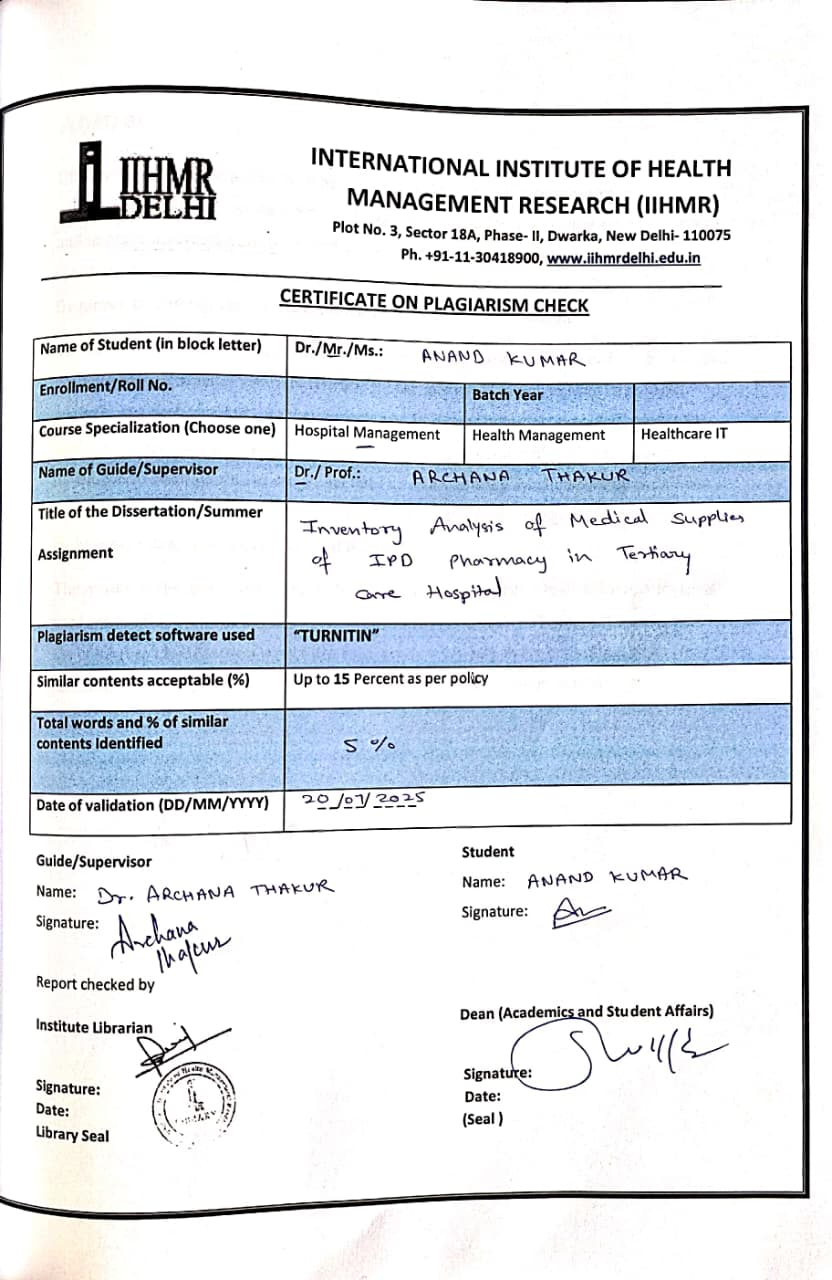 IIHMR
DELHI
INTERNATIONAL INSTITUTE OF HEALTH
MANAGEMENT RESEARCH (IIHMR)
Plot No. 3, Sector 18A, Phase- II, Dwarka, New Delhi- 110075
Ph. +91-11-30418900, www.iihmrdelhi.edu.in
CERTIFICATE ON PLAGIARISM CHECK
Name of Student (in block letter) Dr./Mr./Ms.: ANAND KUMAR
Enrollment/Roll No. Batch Year
Course Specialization (Choose one) Hospital Management Health Management Healthcare IT
Name of Guide/Supervisor Dr./ Prof.: ARCHANA THAKUR
Title of the Dissertation/Summer
Assignment
Inventory Analysis of Medical Supplies
of IPD Pharmacy in Tertiary
Care Hospital
Plagiarism detect software used "TURNITIN"
Similar contents acceptable (%) Up to 15 Percent as per policy
Total words and % of similar
contents Identified
5 %
Date of validation (DD/MM/YYYY) 20/07/2025
Guide/Supervisor
Name: Dr. ARCHANA THAKUR
Signature: Archana
Thakur
Student
Name: ANAND KUMAR
Signature:
Report checked by
Institute Librarian
Signature:
Date:
Library Seal
Dean (Academics and Student Affairs)
Signature:
Date:
(Seal )